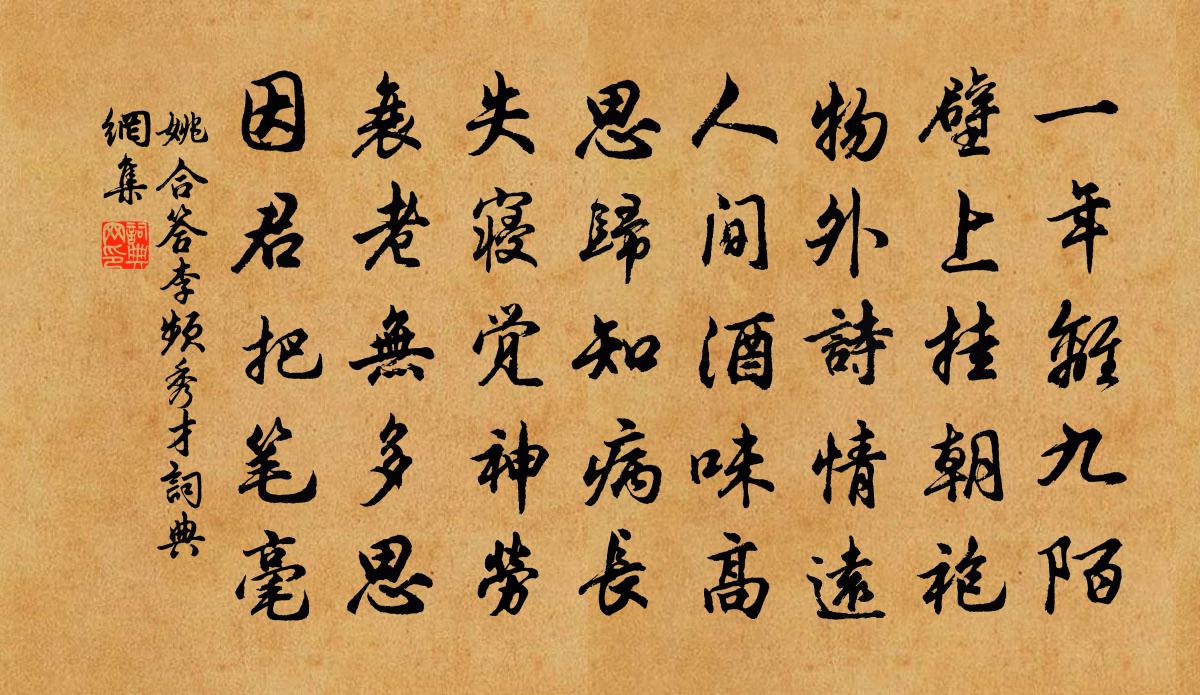 一年離九陌
壁上挂朝袍
物外詩情遠
人间酒味高
思歸知病長
失寝覺神勞
衰老無多思
因君把笔毫
姚合答李频秀才詞典
網集
詞典
网印